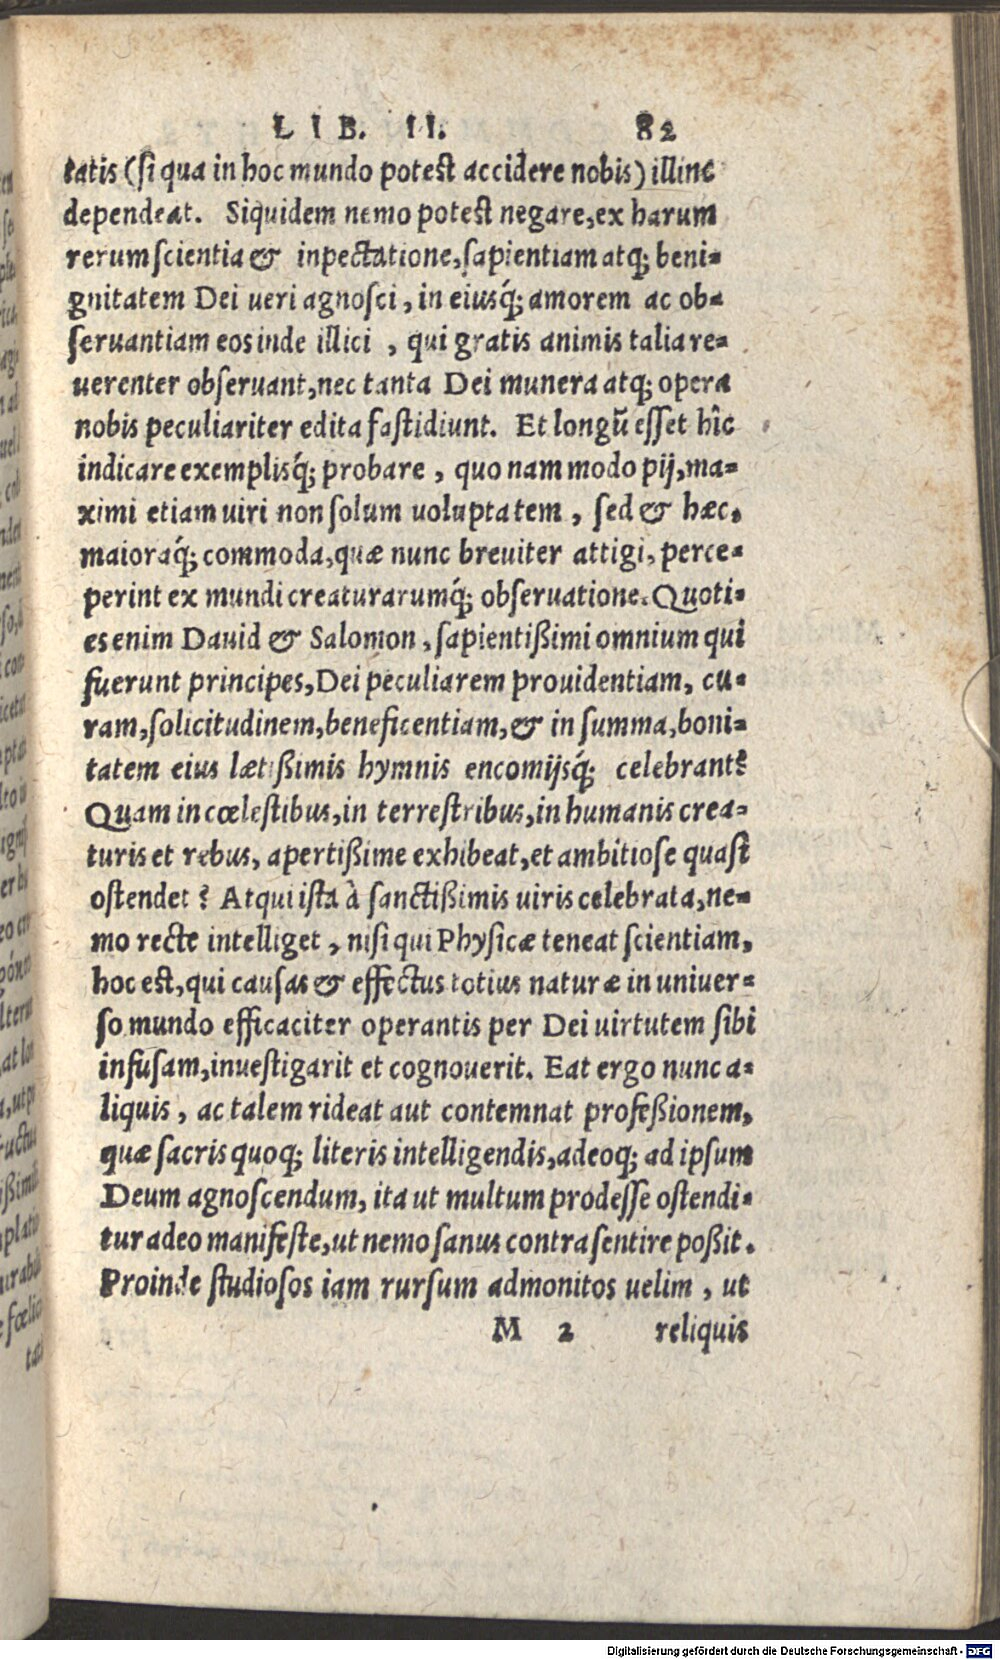 LIB. II. 82
tatis (si qua in hoc mundo potest accidere nobis) illinc
dependeat. Siquidem nemo potest negare, ex harum
rerum scientia & inpectatione, sapientiam atq; beni-
gnitatem Dei ueri agnosci, in eiusq́; amorem ac ob-
seruantiam eos inde illici, qui gratis animis talia re-
uerenter obseruant, nec tanta Dei munera atq; opera
nobis peculiariter edita fastidiunt. Et longũ esset hîc
indicare exemplisq́; probare, quo nam modo pij, ma-
ximi etiam uiri non solum uoluptatem, sed & hæc,
maioraq́; commoda, quæ nunc breuiter attigi, perce-
perint ex mundi creaturarumq́; obseruatione. Quoti-
es enim Dauid & Salomon, sapientißimi omnium qui
fuerunt principes, Dei peculiarem prouidentiam, cu-
ram, solicitudinem, beneficentiam, & in summa, boni-
tatem eius lætißimis hymnis encomijsq́; celebrant?
Quam in cœlestibus, in terrestribus, in humanis crea-
turis et rebus, apertißime exhibeat, et ambitiose quasi
ostendet? Atqui ista à sanctißimis uiris celebrata, ne-
mo recte intelliget, nisi qui Physicæ teneat scientiam,
hoc est, qui causas & effectus totius naturæ in uniuer-
so mundo efficaciter operantis per Dei uirtutem sibi
infusam, inuestigarit et cognouerit. Eat ergo nunc a-
liquis, ac talem rideat aut contemnat profeßionem,
quæ sacris quoq; literis intelligendis, adeoq; ad ipsum
Deum agnoscendum, ita ut multum prodesse ostendi-
tur adeo manifeste, ut nemo sanus contra sentire poßit.
Proinde studiosos iam rursum admonitos uelim, ut
M 2 reliquis
Digitalisierung gefördert durch die Deutsche Forschungsgemeinschaft - DFG